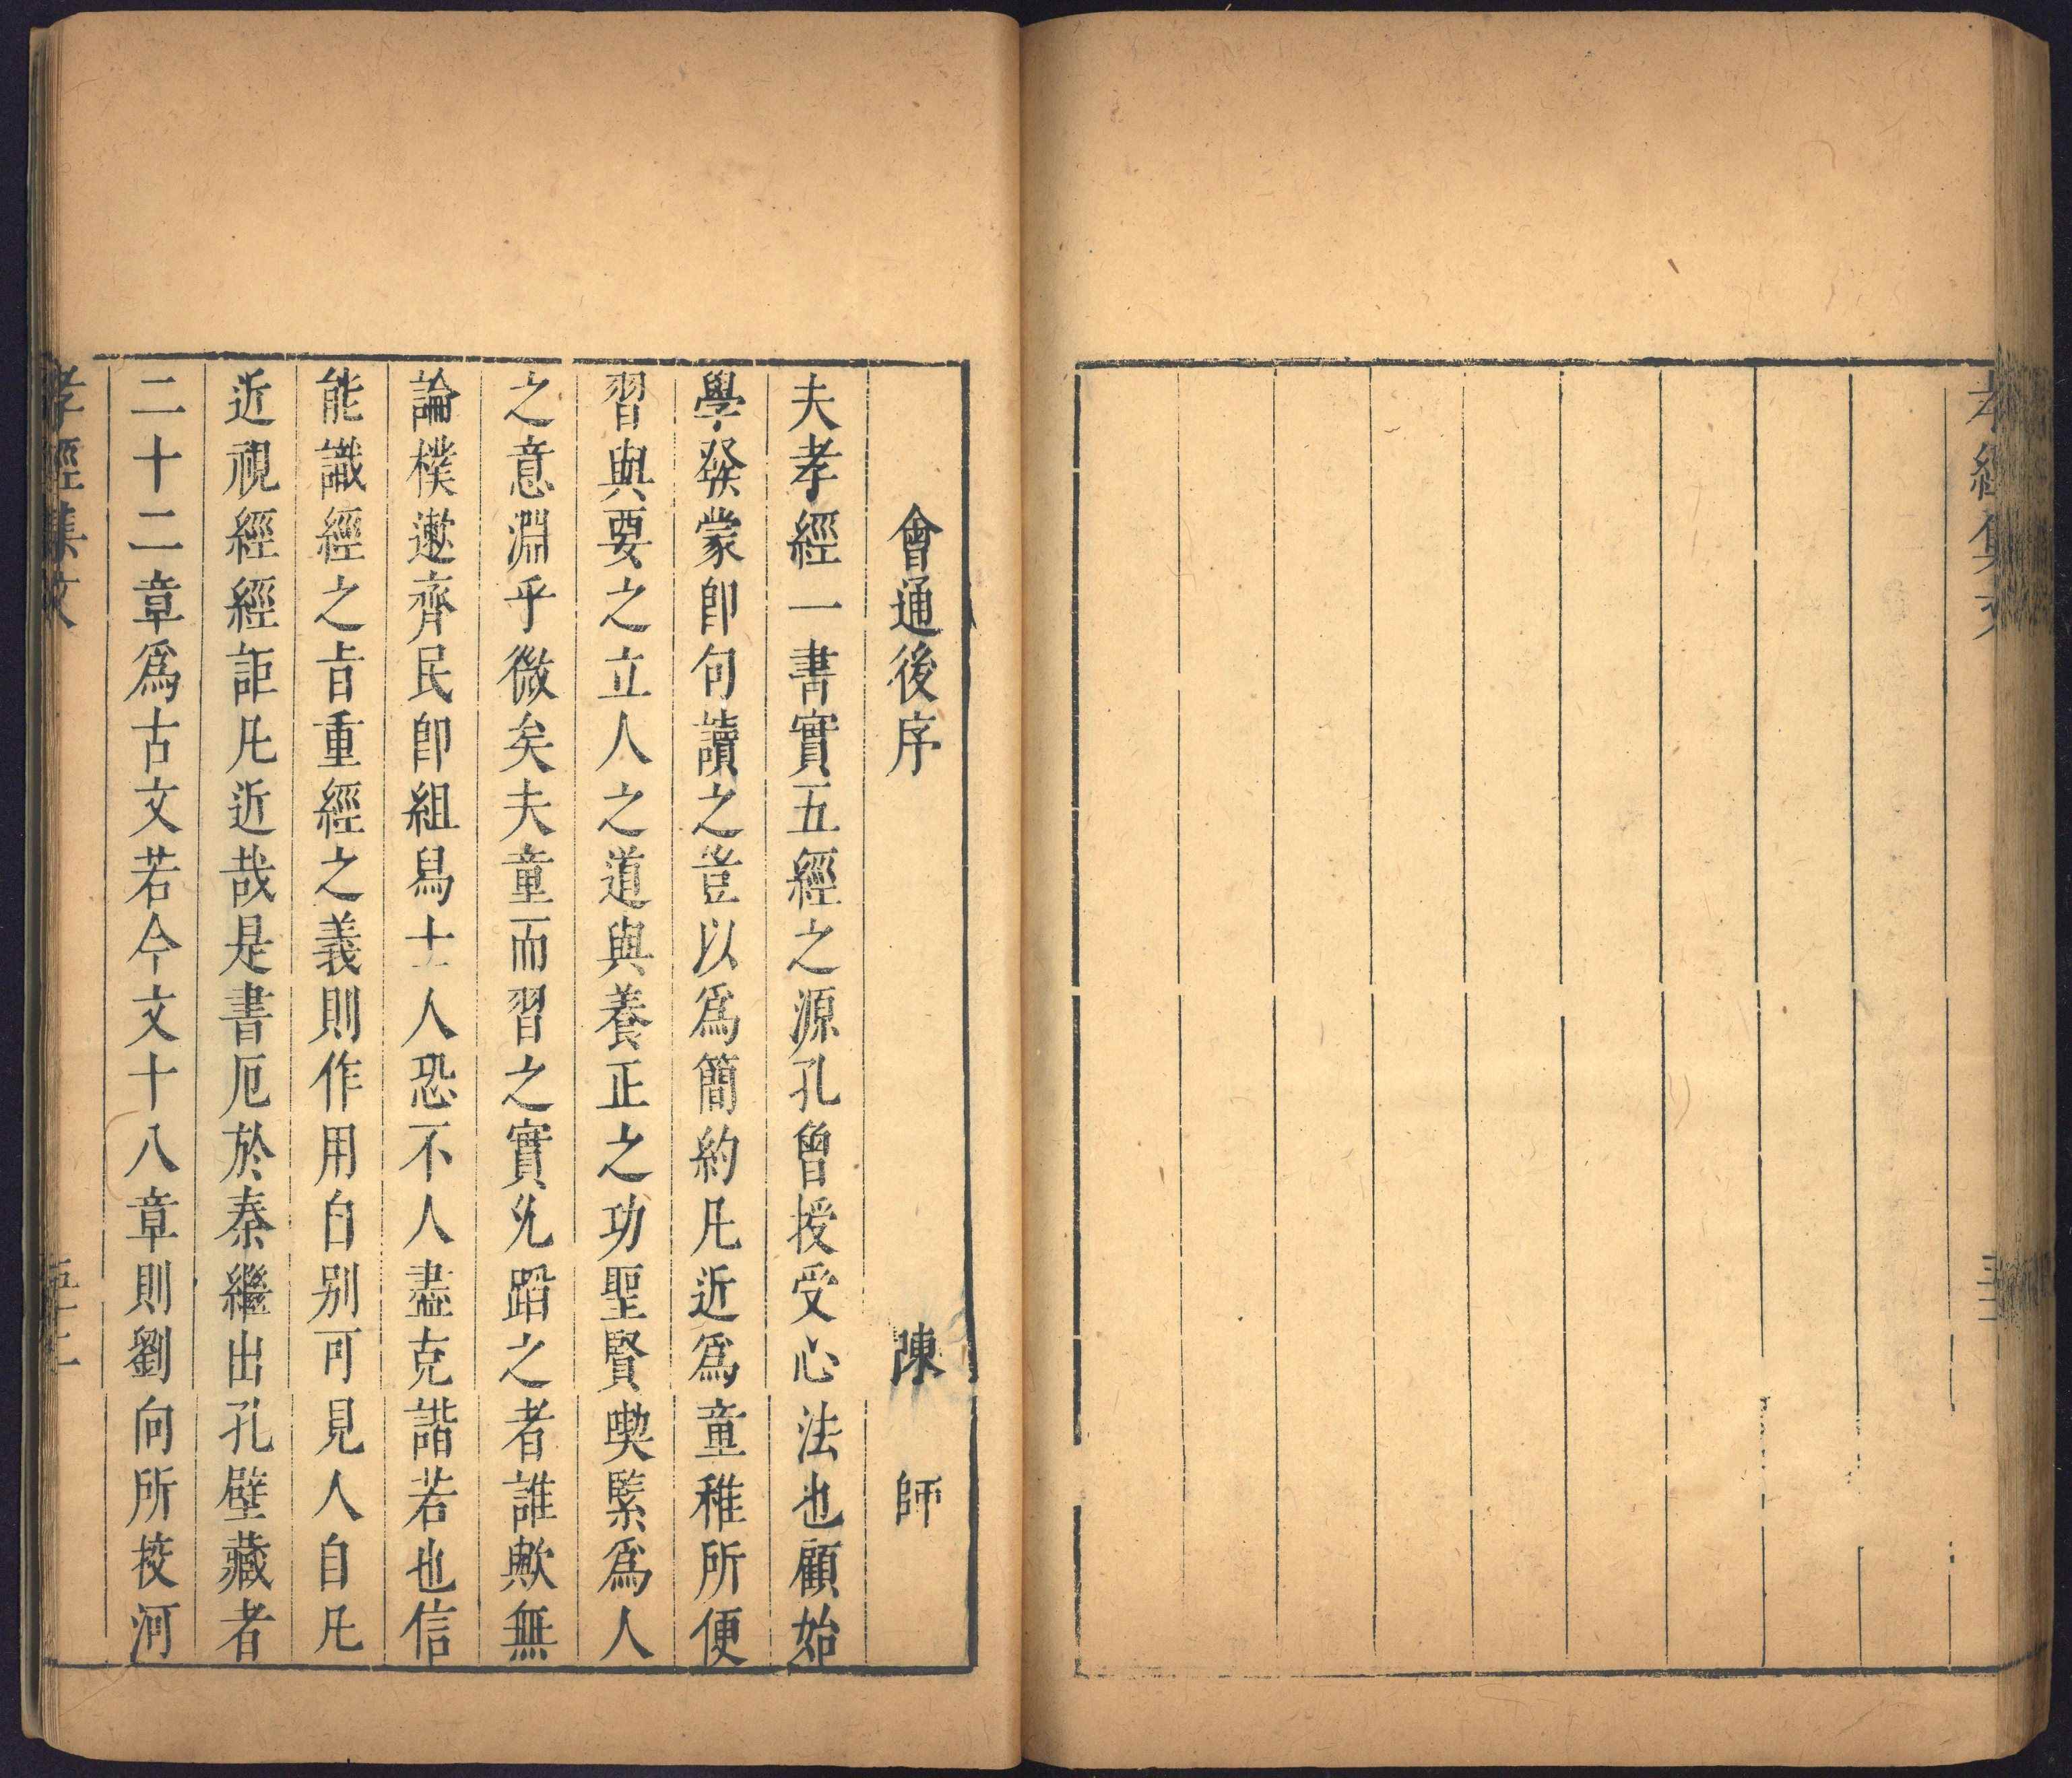 會通後序 陳 師
夫孝經一書實五經之源孔曾授受心法也顧始
學發蒙卽句讀之豈以爲簡約凡近爲童稚所便
習與要之立人之道與養正之功聖賢喫緊爲人
之意淵乎微矣夫童而習之實允蹈之者誰歟無
論樸遬齊民卽組舄士人恐不人盡克諧若也信
能識經之旨重經之義則作用自别可見人自凡
近視經經詎凡近哉是書厄於秦繼出孔壁藏者
二十二章爲古文若今文十八章則劉向所挍河
孝經集文